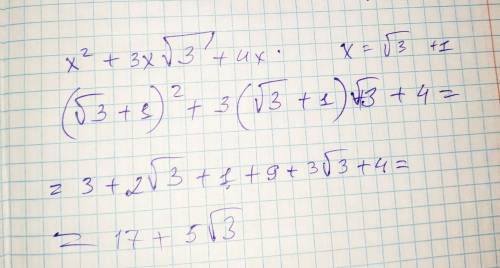 x² + 3x√3 + 4x. x = √3 + 1
(√3 + 1)² + 3(√3 + 1)√3 + 4 =
= 3 + 2√3 + 1 + 9 + 3√3 + 4 =
= 17 + 5√3